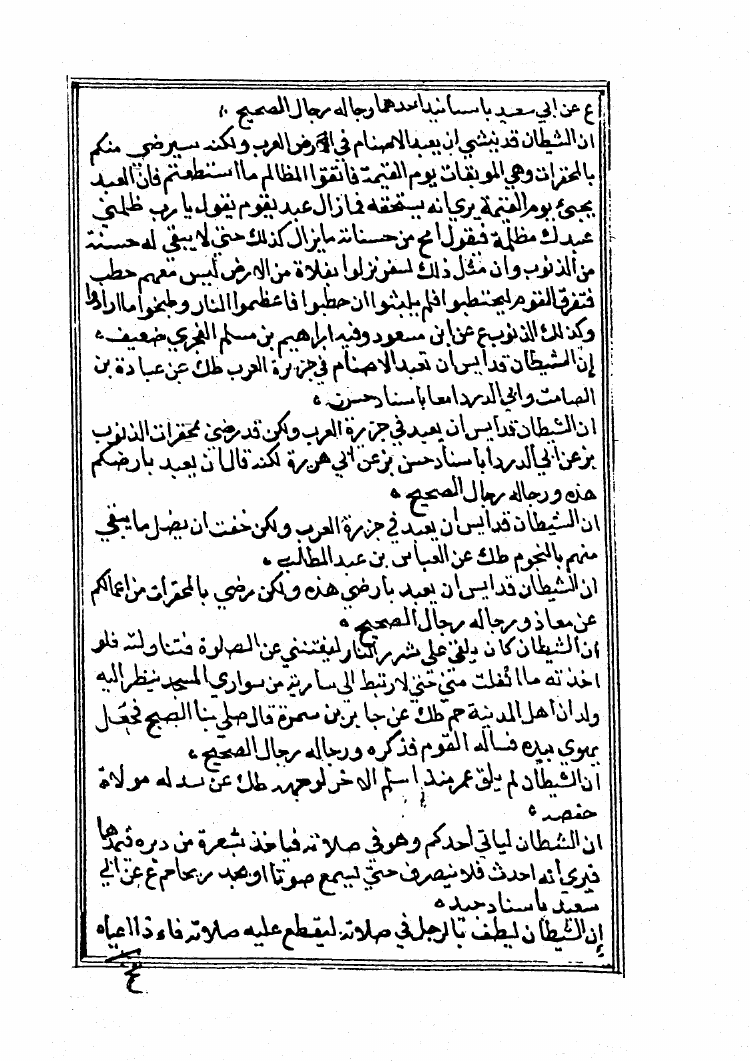 ع عن ابي سعيد باسانيد احدها رجاله رجال الصحيح
ان الشيطان قد يئس ان يعبد الاصنام في الارض العرب ولكنه سيرضى منكم
بالمحقرات وهي الموبقات يوم القيمة فاتقوا المظالم ما استطعتم فان العبد
يجيئ يوم القيمة يرى انه يستحقه فما زال عبد يقوم يقول يا رب ظلمني
عبدك مظلمة فيقول امح من حسناته ما يزال كذلك حتى لا يبقى له حسنة
من الذنوب وان مثل ذلك لسفر نزلوا بفلاة من الارض ليس معهم حطب
فتفرق القوم ليحتطبوا فلم يلبثوا ان حطبوا فاعظموا النار وطبخوا ما ارادوا
وكذلك الذنوب ع عن ابن مسعود وفيه ابراهيم بن مسلم الهجري ضعيف
إن الشيطان قد ايس ان تعبد الاصنام في جزيرة العرب طك عن عبادة بن
الصامت وابي الدرداء معا باسناد حسن
ان الشيطان قد ايس ان يعبد في جزيرة العرب ولكن قد رضي بمحقرات الذنوب
بز عن ابي الدرداء باسناد حسن بز عن ابي هريرة لكنه قال ان يعبد بارضكم
هذه ورجاله رجال الصحيح
ان الشيطان قد ايس ان يعبد في جزيرة العرب ولكن خفت ان يضل ما بقي
منهم بالنجوم طك عن العباس بن عبد المطالب
ان الشيطان قد ايس ان يعبد بارضي هذه ولكن رضي بالمحقرات من اعمالكم
عن معاذ ورجاله رجال الصحيح
ان الشيطان كان يلقى على شرر النار ليفتنني عن الصلوة فتناولته فلو
اخذته ما انفلت مني حتى لارتبط الى سارية من سواري المسجد ينظر اليه
ولدان اهل المدينة حم طك عن جابر بن سمرة قال صلى بنا الصبح فجعل
يهوي بيده فساله القوم فذكره ورجاله رجال الصحيح
ان الشيطان لم يلق عمر منذ اسلم الا خر لوجهه طك عن سديسة مولاة
حفصه
ان الشيطان لياتي احدكم وهو في صلاته فياخذ بشعرة من دبره فيمدها
فيرى انه احدث فلا ينصرف حتى يسمع صوتا او يجد ريحا حم ع عن ابي
سعيد باسناد جيد
إن الشيطان ليطف بالرجل في صلاته ليقطع عليه صلاته فاذا اعياه